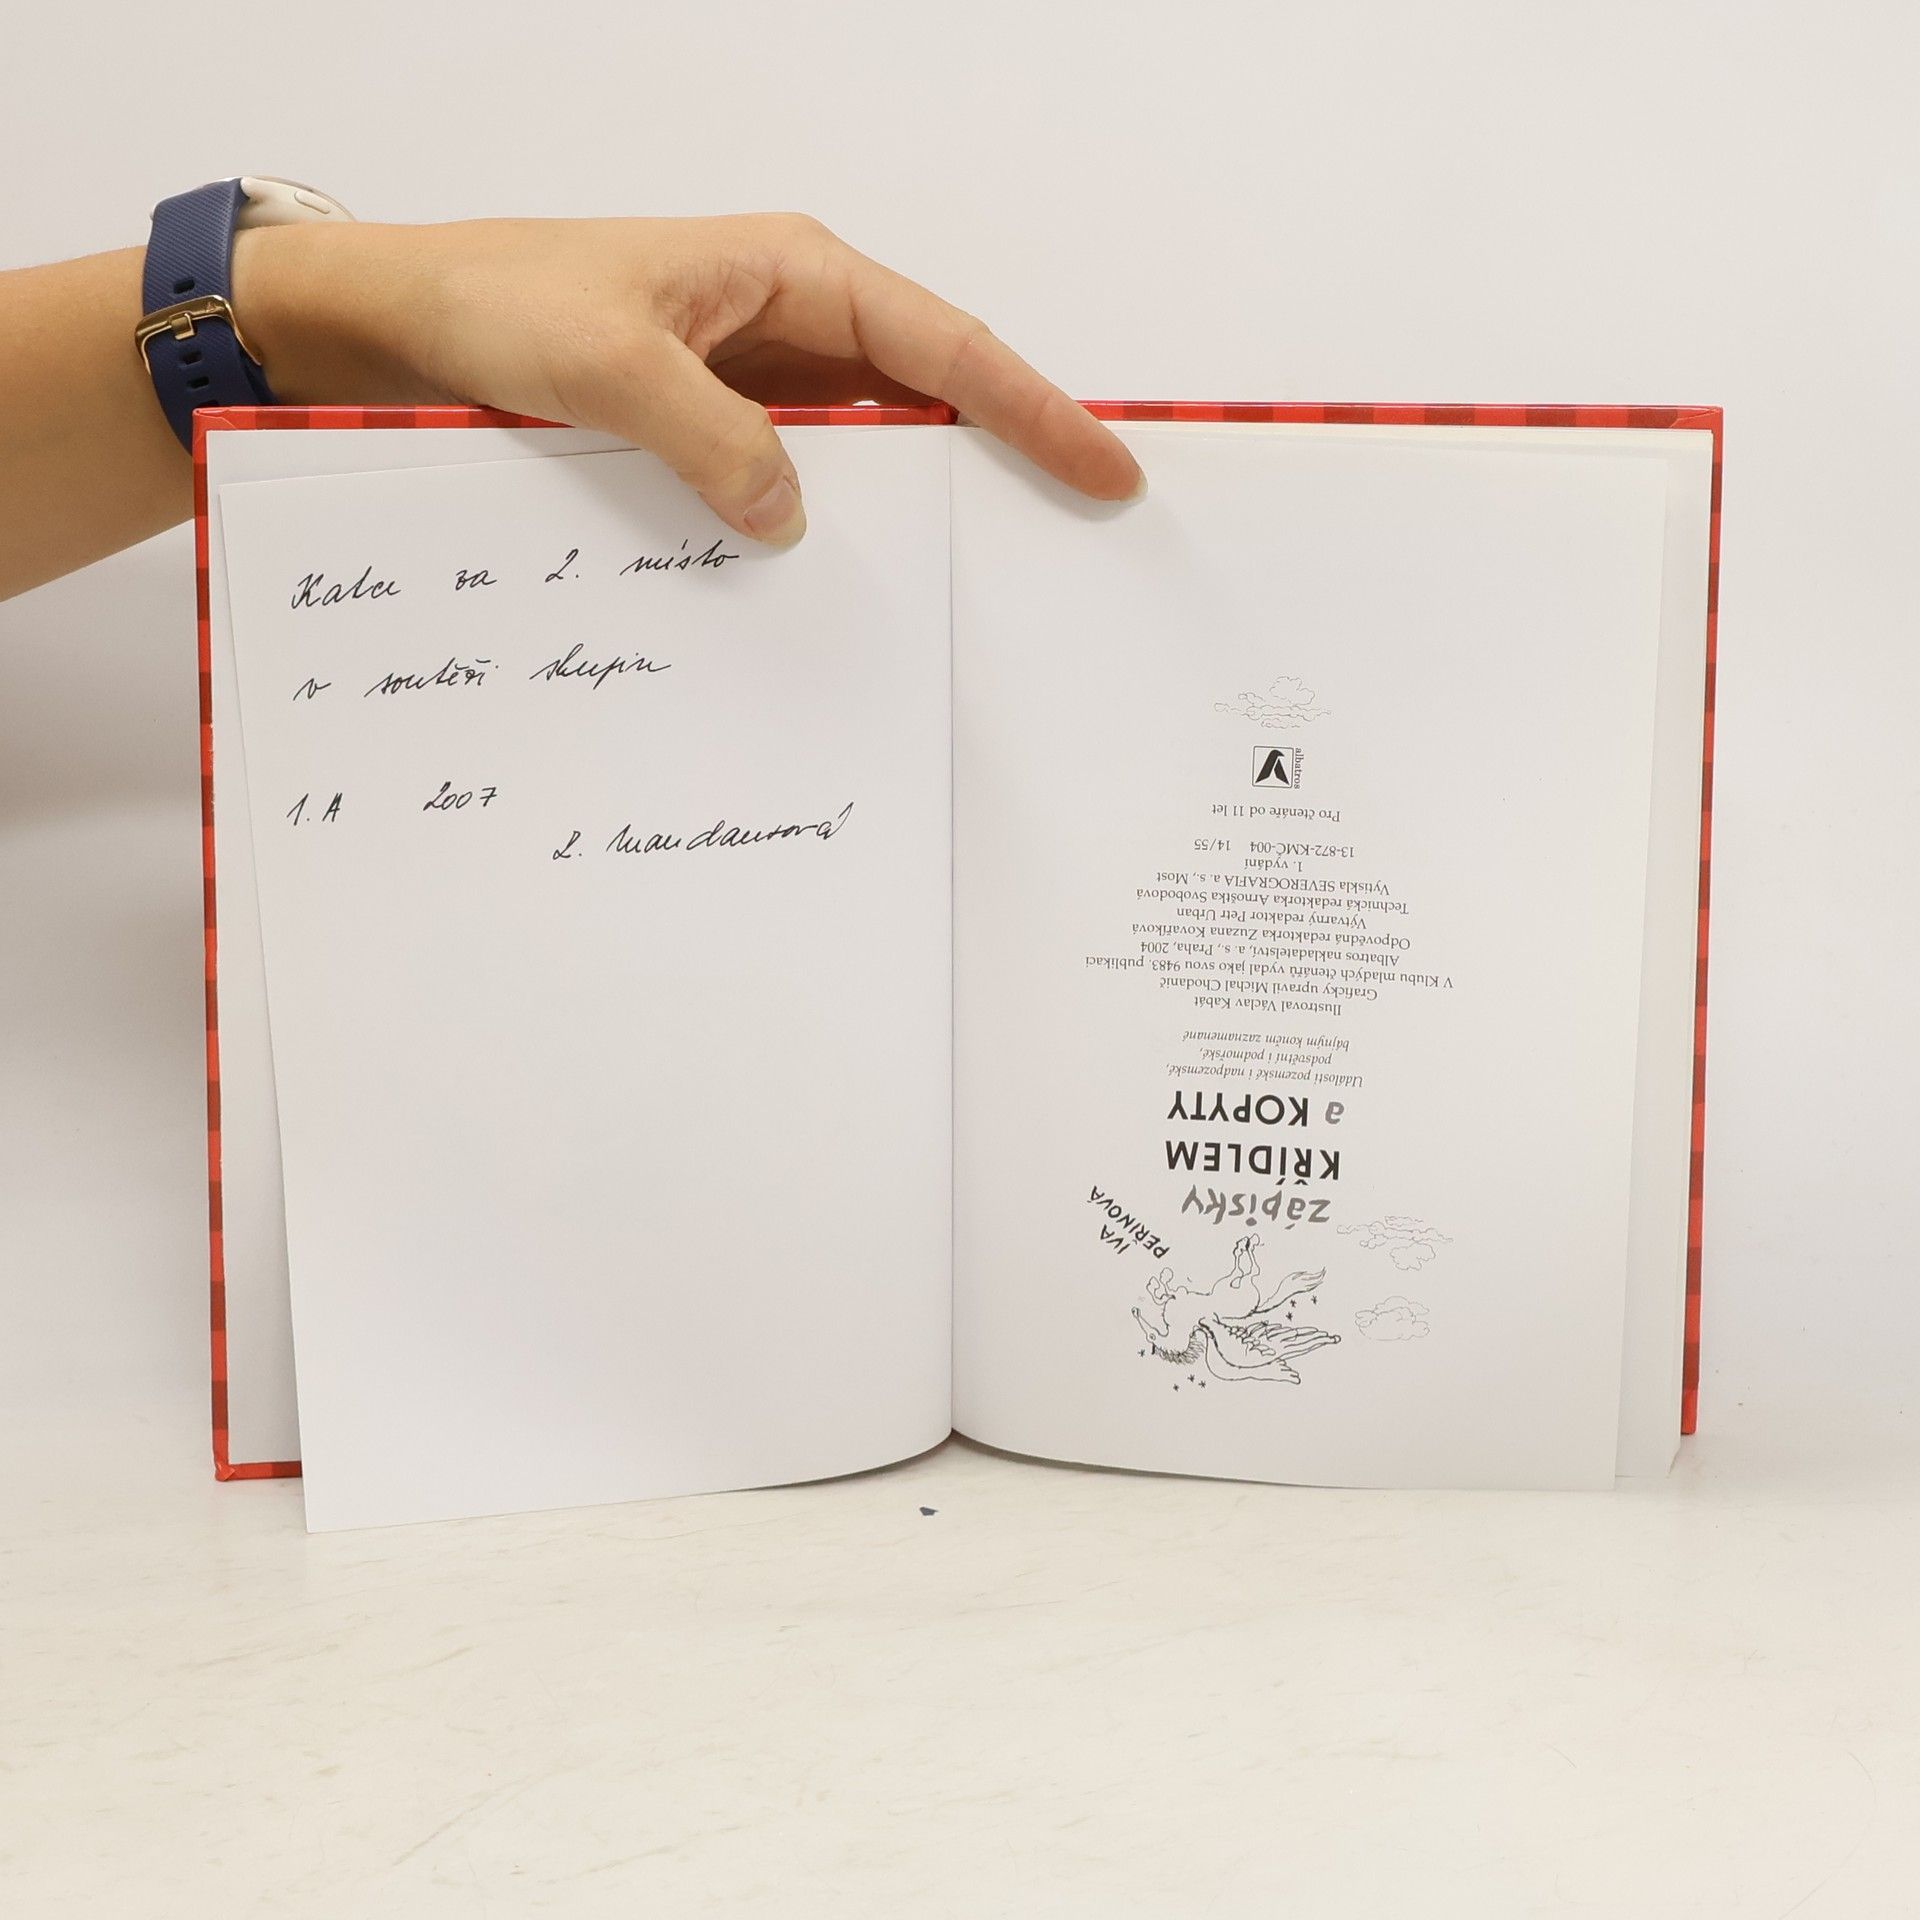 Katce za 2. místo
v soutěži skupin
1. A 2007
albatros
Pro čtenáře od 11 let
13-872-KMČ-004 14/55
1. vydání
Vytiskla SEVEROGRAFIA a. s., Most
Technická redaktorka Arnoštka Svobodová
Výtvarný redaktor Petr Urban
Odpovědná redaktorka Zuzana Kovaříková
Albatros nakladatelství, a. s., Praha, 2004
V Klubu mladých čtenářů vydal jako svou 9483. publikaci
Graficky upravil Michal Chodanič
Ilustroval Václav Kabát
bájným koněm zaznamenané
podsvětní i podmořské,
Události pozemské i nadpozemské,
a KOPYTY
KŘÍDLEM
zápisky
IVA
PEŘINOVÁ